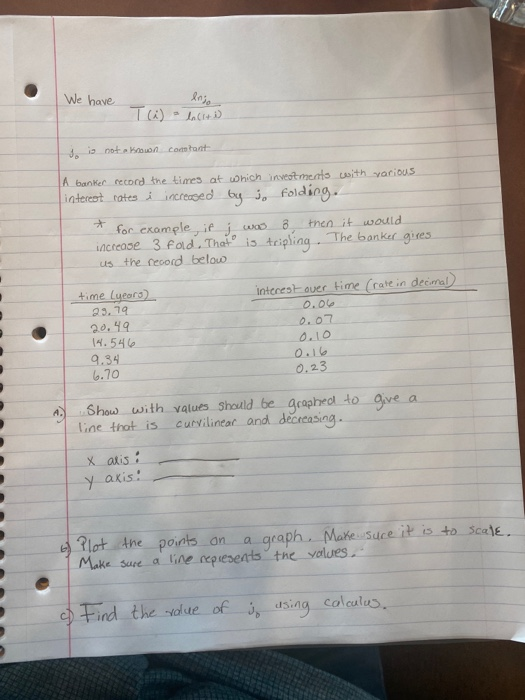 We have T(i) = ln j₀ / ln(1+i)
j₀ is not a known constant
A banker record the times at which investments with various
interest rates i increased by j₀ folding.
* for example, if j₀ was 3, then it would
increase 3 fold. That is tripling. The banker gives
us the record below
time (years) interest over time (rate in decimal)
23.79 0.06
20.49 0.07
14.546 0.10
9.34 0.16
6.70 0.23
A.) Show with values should be graphed to give a
line that is curvilinear and decreasing.
x axis:
y axis:
b) Plot the points on a graph. Make sure it is to scale.
Make sure a line represents the values.
c) Find the value of j₀ using calculus.